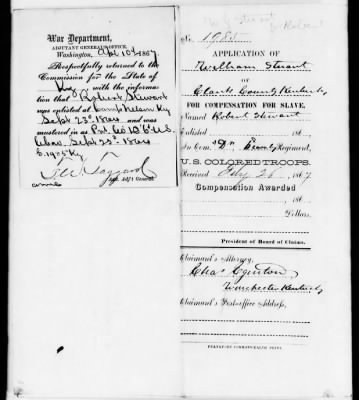 War Department,
ADJUTANT GENERAL'S OFFICE,
Washington, Apl 10th 1867
Respectfully returned to the
Commission for the State of
Ky with the informa
tion that Robert Stewart
was enlisted at Camp Nelson Ky
Sept 23d 1864 and was
mustered in as Pvt Co D 6" U.S.
Cav. Sept 23d 1864
Asst. Adj't General.
No.
APPLICATION OF
William Stuart
OF
Clark County Kentucky
FOR COMPENSATION FOR SLAVE.
Named Robert Stewart
Enlisted 186
In Com. "D" Regiment,
U.S. COLORED TROOPS.
Received Feby 26 1867
Compensation Awarded
186
Dollars.
President of Board of Claims.
Claimant's Attorney,
Chas Eginton
Winchester Kentucky
Claimant's Post-office Address,
FRANKFORT COMMONWEALTH PRINT.